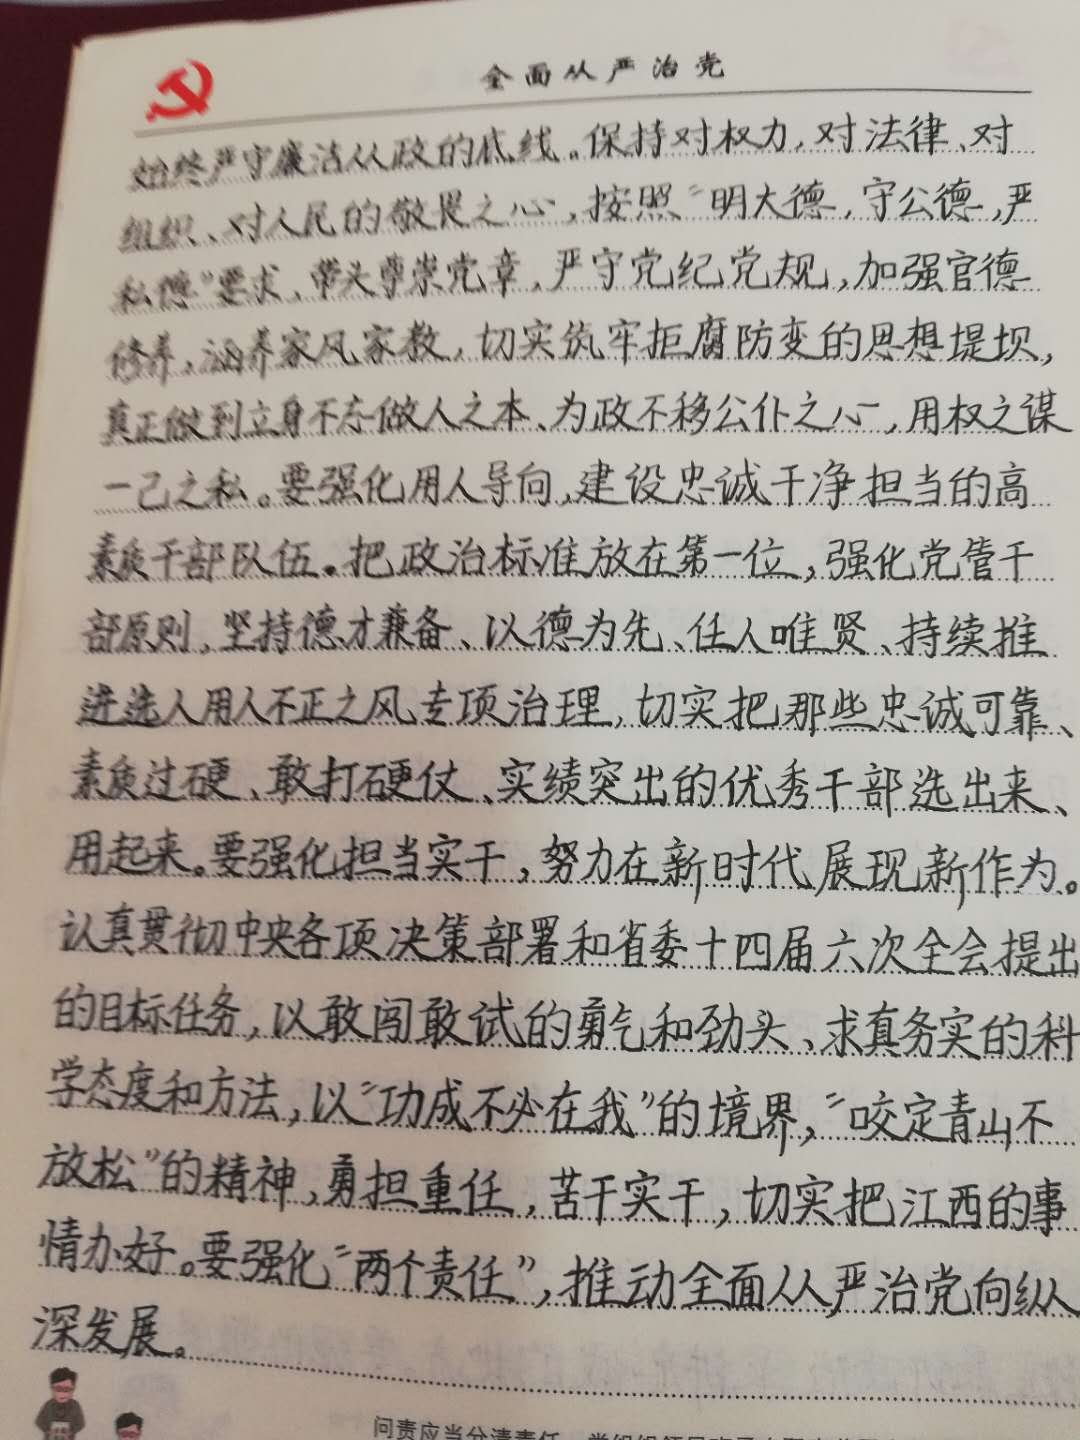 全面从严治党
始终严守廉洁从政的底线。保持对权力,对法律、对
组织、对人民的敬畏之心,按照“明大德,守公德,严
私德”要求,带头尊崇党章,严守党纪党规,加强官德
修养,涵养家风家教,切实筑牢拒腐防变的思想堤坝,
真正做到立身不忘做人之本、为政不移公仆之心,用权之谋
一己之私。要强化用人导向,建设忠诚干净担当的高
素质干部队伍。把政治标准放在第一位,强化党管干
部原则,坚持德才兼备、以德为先、任人唯贤、持续推
进选人用人不正之风专项治理,切实把那些忠诚可靠、
素质过硬、敢打硬仗、实绩突出的优秀干部选出来、
用起来。要强化担当实干,努力在新时代展现新作为。
认真贯彻中央各项决策部署和省委十四届六次全会提出
的目标任务,以敢闯敢试的勇气和劲头、求真务实的科
学态度和方法,以“功成不必在我”的境界,“咬定青山不
放松”的精神,勇担重任,苦干实干,切实把江西的事
情办好。要强化“两个责任”,推动全面从严治党向纵
深发展。
问责应当分清责任。党组织领导班子